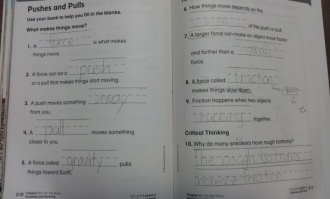 Pushes and Pulls
Use your book to help you fill in the blanks.
What makes things move?
1. A force is what makes
things move.
2. A force can be a push
or a pull that makes things start moving.
3. A push moves something away
from you.
4. A pull moves something
closer to you.
5. A force called gravity pulls
things toward Earth.
6. How things move depends on the
of the push or pull.
7. A larger force can make an object move faster
and farther than a small
force.
8. A force called friction
makes things slow down.
9. Friction happens when two objects
rubbing together.
Critical Thinking
10. Why do many sneakers have rough bottoms?
the rough bottoms
increase friction